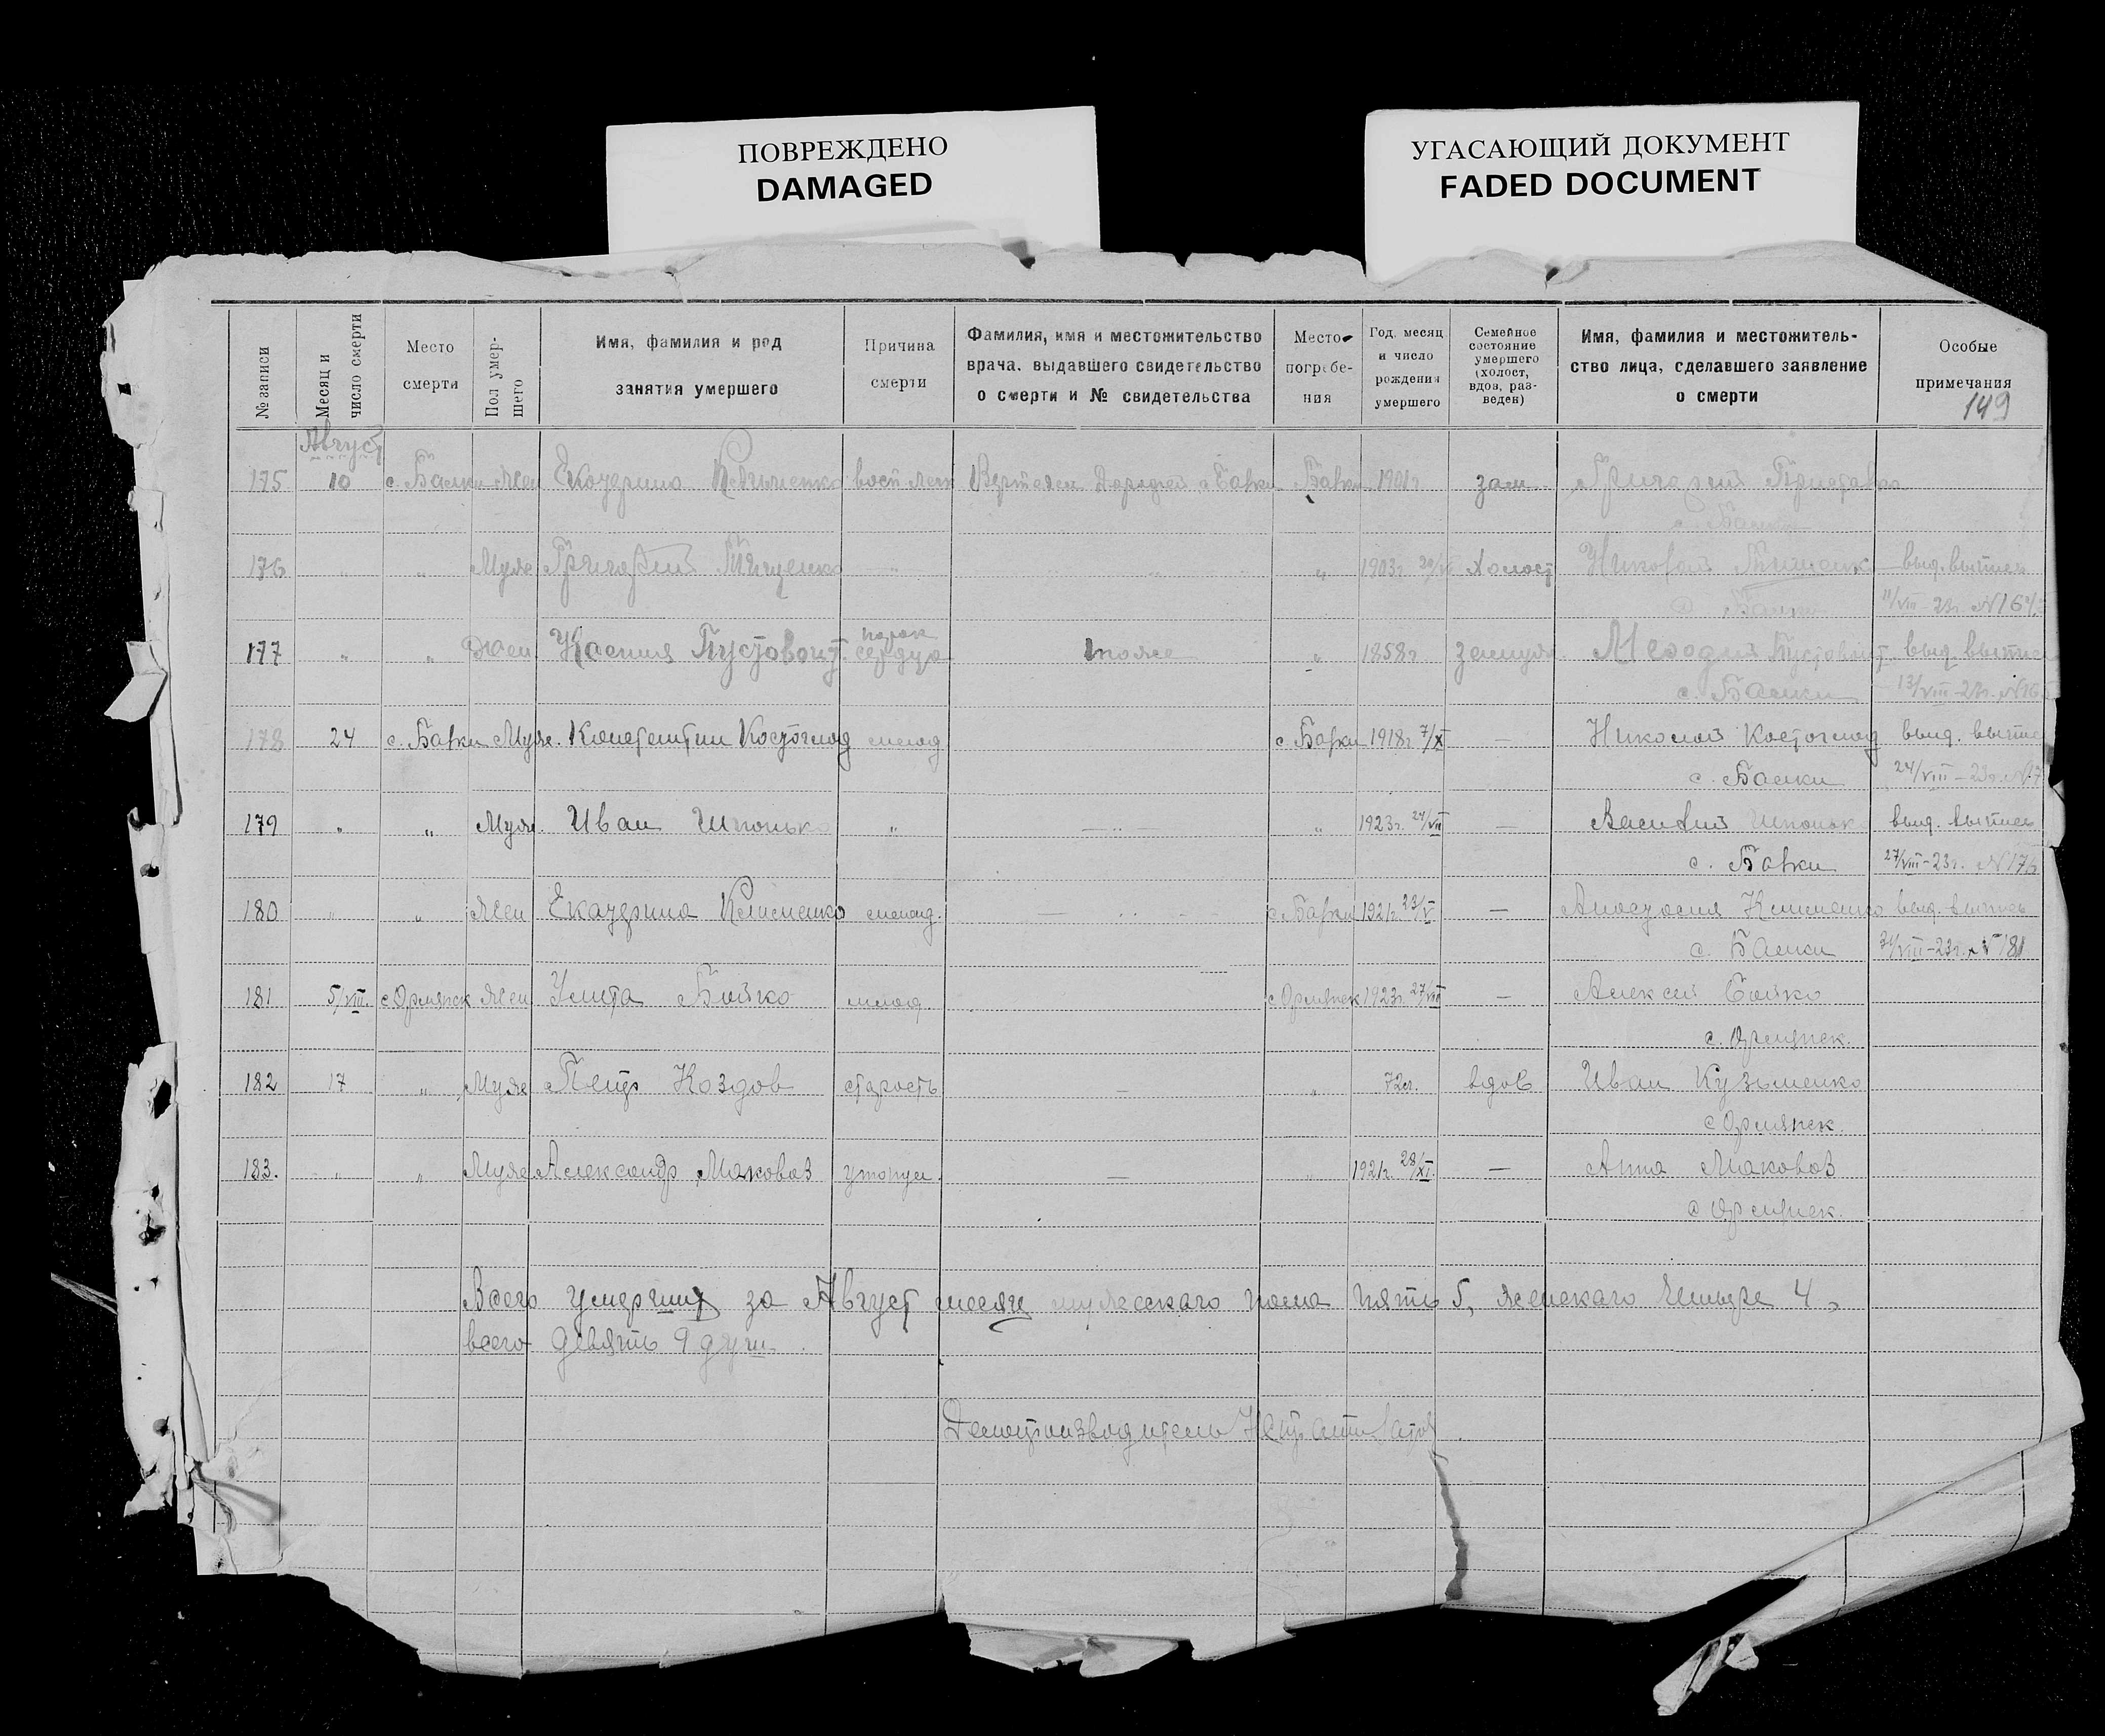 ПОВРЕЖДЕНО
DAMAGED
УГАСАЮЩИЙ ДОКУМЕНТ
FADED DOCUMENT
№ записи
Месяц и число смерти
Место смерти
Пол умер-
шего
Имя, фамилия и род
занятия умершего
Причина
смерти
Фамилия, имя и местожительство
врача, выдавшего свидетельство
о смерти и № свидетельства
Место
погребе-
ния
Год, месяц
и число
рождения
умершего
Семейное
состояние
умершего
(холост,
вдов, раз-
веден)
Имя, фамилия и местожитель-
ство лица, сделавшего заявление
о смерти
Особые
примечания
149
Август
175 10 с. Балки жен Екатерина восп легк с Балки Балки 1901г зам Григорий
с. Балки
176 " " Муж Григорий Тищенко " " 1903г. Холост Николай Тищенк выд. выпись
с Балки 11/VIII - 23г. №
177 " " жен Ксения Пустовойт порок сердца тоже " 1858г. замуж. Мефодий Пустовойт выд. выпис
с. Балки 13/VIII - 23г. №16
178 24 с. Балки Муж. Константин Костоглод млад с. Балки 1918г 7/X — Николай Костоглод выд. выпис
с. Балки 24/VIII - 23г. №17
179 " " Муж. Иван Шпонько " — " — " 1923г. 24/VII — Василий Шпоньк выд. выпись
с. Балки 27/VIII - 23г. №176
180 " " жен Екатерина Клименко млад. — " - с Балки 1921г. 23/V — Анастасия Клименко выд. выпись
с. Балки 31/VIII - 23г. №181
181 5/VIII. с Орлянск жен Улита Бойко млад. с Орлянск 1923г. 27/VII — Алексей Бойко
с. Орлянск.
182 17 " Муж Петр Козлов старость — " 72л. вдов Иван Кузьменко
с Орлянск.
183. " " Муж Александр Маковоз утонул. — " 1921г. 28/XI. — Анна Маковоз
с Орлянск.
Всего умерших за Август месяц мужескаго пола пять 5, женскаго четыре 4,
всего девять 9 душ.
Делопроизводитель